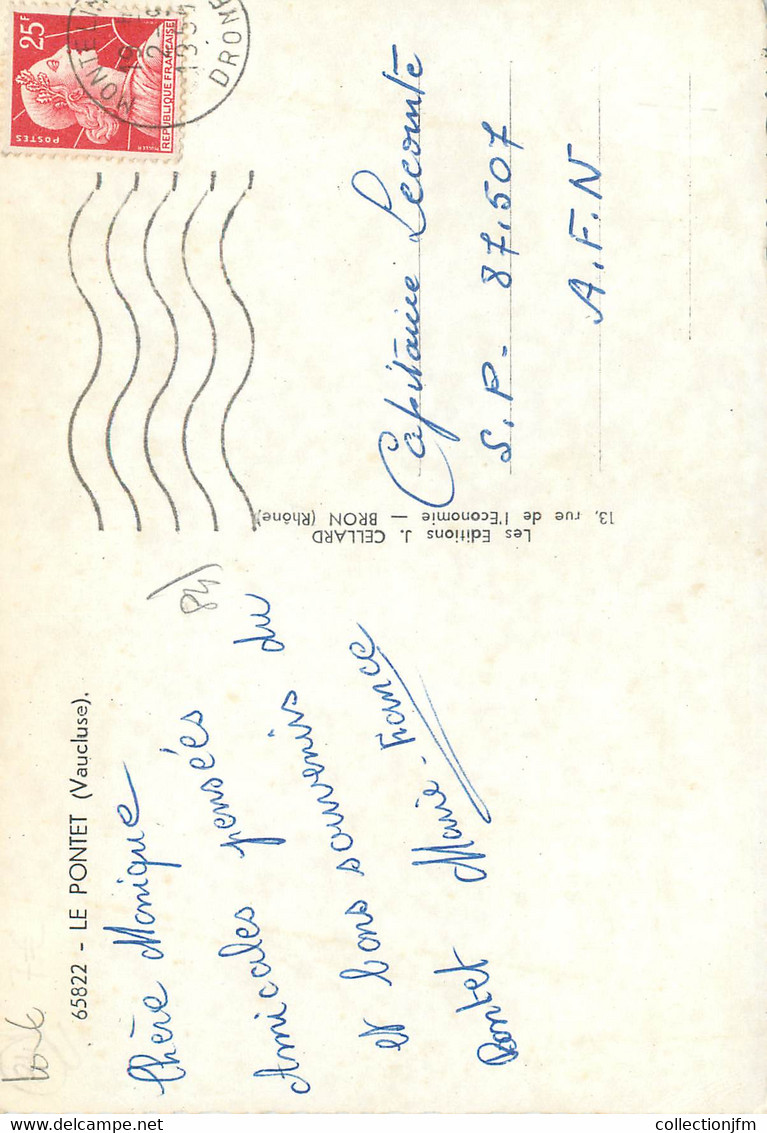 65822 - LE PONTET (Vaucluse).
Chère Monique
Amicales pensées du
et bons souvenirs
Pontet Marie-France
84
Les Editions J. CELLARD
13, rue de l'Economie — BRON (Rhône)
25F
POSTES
REPUBLIQUE FRANÇAISE
DROME
Capitaine Lecomte
S.P. 87.507
A.F.N
collectionjfm